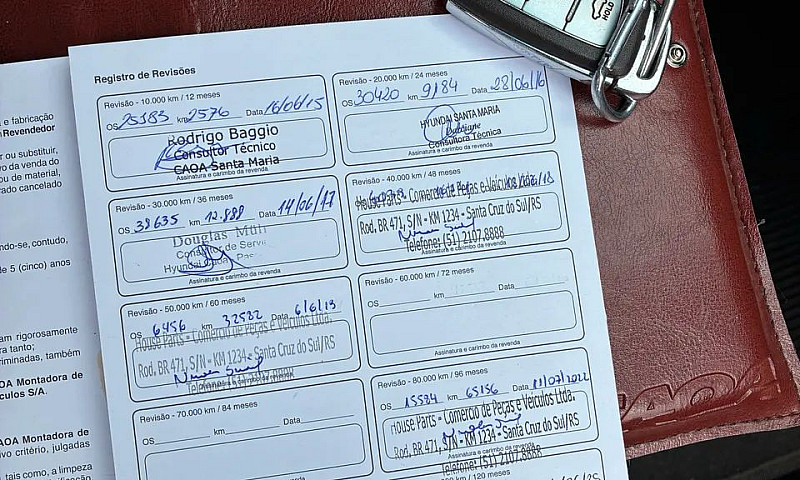 HOLD
Registro de Revisões
e fabricação
n Revendedor
or ou substituir,
vo da venda do
ou de material,
rado cancelado
ndo-se, contudo,
de 5 (cinco) anos
am rigorosamente
ra tanto;
criminadas, também
AOA Montadora de
ículos S/A.
AOA Montadora de
ivo critério, julgadas
tais como, a limpeza
Revisão - 10.000 km / 12 meses
OS 25383 km 2576 Data 16/06/15
Rodrigo Baggio
Consultor Técnico
CAOA Santa Maria
Assinatura e carimbo da revenda
Revisão - 20.000 km / 24 meses
OS 30420 km 9184 Data 28/06/16
HYUNDAI SANTA MARIA
Consultora Técnica
Assinatura e carimbo da revenda
Revisão - 30.000 km / 36 meses
OS 38635 km 12.888 Data 14/06/17
Douglas
Consultor de
Hyundai
Assinatura e carimbo da revenda
Revisão - 40.000 km / 48 meses
House Parts - Comercio de Peças e Veículos Ltda.
Rod, BR 471, S/N - KM 1234 - Santa Cruz do Sul/RS
Telefone: (51) 2107.8888
Assinatura e carimbo da revenda
Revisão - 50.000 km / 60 meses
OS 6456 km 32532 Data 6/6/19
House Parts - Comercio de Peças e Veículos Ltda.
Rod, BR 471, S/N - KM 1234 - Santa Cruz do Sul/RS
Assinatura e carimbo da revenda
Revisão - 60.000 km / 72 meses
OS km Data
Assinatura e carimbo da revenda
Revisão - 70.000 km / 84 meses
OS km Data
Revisão - 80.000 km / 96 meses
OS 15534 km 65156 Data 11/07/2022
House Parts - Comercio de Peças e Veículos Ltda.
Rod, BR 471, S/N - KM 1234 - Santa Cruz do Sul/RS
Assinatura e carimbo da revenda
Telefone: (51) 2107.8888
120 meses